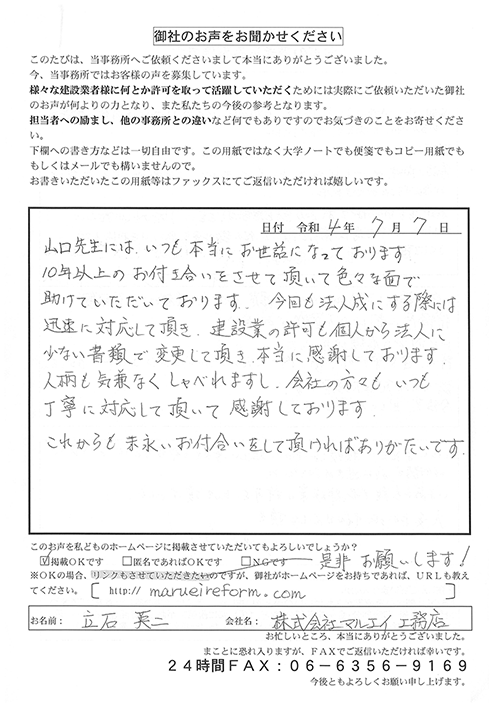 御社のお声をお聞かせください
このたびは、当事務所へご依頼くださいまして本当にありがとうございました。
今、当事務所ではお客様の声を募集しています。
様々な建設業者様に何とか許可を取って活躍していただくためには実際にご依頼いただいた御社
のお声が何よりの力となり、また私たちの今後の参考となります。
担当者への励まし、他の事務所との違いなど何でもありですのでお気づきのことをお寄せくださ
い。
下欄への書き方などは一切自由です。この用紙ではなく大学ノートでも便箋でもコピー用紙でも
もしくはメールでも構いませんので。
お書きいただいたこの用紙等はファックスにてご返信いただければ嬉しいです。
日付 令和 4年 7月 7日
山口先生には、いつも本当にお世話になっております
10年以上のお付き合いをさせて頂いて色々な面で
助けていただいております。今回も法人成にする際には
迅速に対応して頂き、建設業の許可も個人から法人に
少ない書類で変更して頂き、本当に感謝しております。
人柄も気兼なくしゃべれますし、会社の方々もいつも
丁寧に対応して頂いて感謝しております。
これからも末永いお付合いをして頂ければありがたいです。
このお声を私どものホームページに掲載させていただいてもよろしいでしょうか？
☑掲載OKです □匿名であればOKです □NGです 是非お願いします!
※OKの場合、リンクもさせていただきたいのですが、御社がホームページをお持ちであれば、URLも教え
てください。[ http:// marueireform.com ]
お名前： 立石 英二 会社名： 株式会社マルエイ工務店
お忙しいところ、本当にありがとうございました。
まことに恐れ入りますが、FAXでご返信いただければ幸いです。
24時間FAX：06-6356-9169
今後ともよろしくお願い申し上げます。